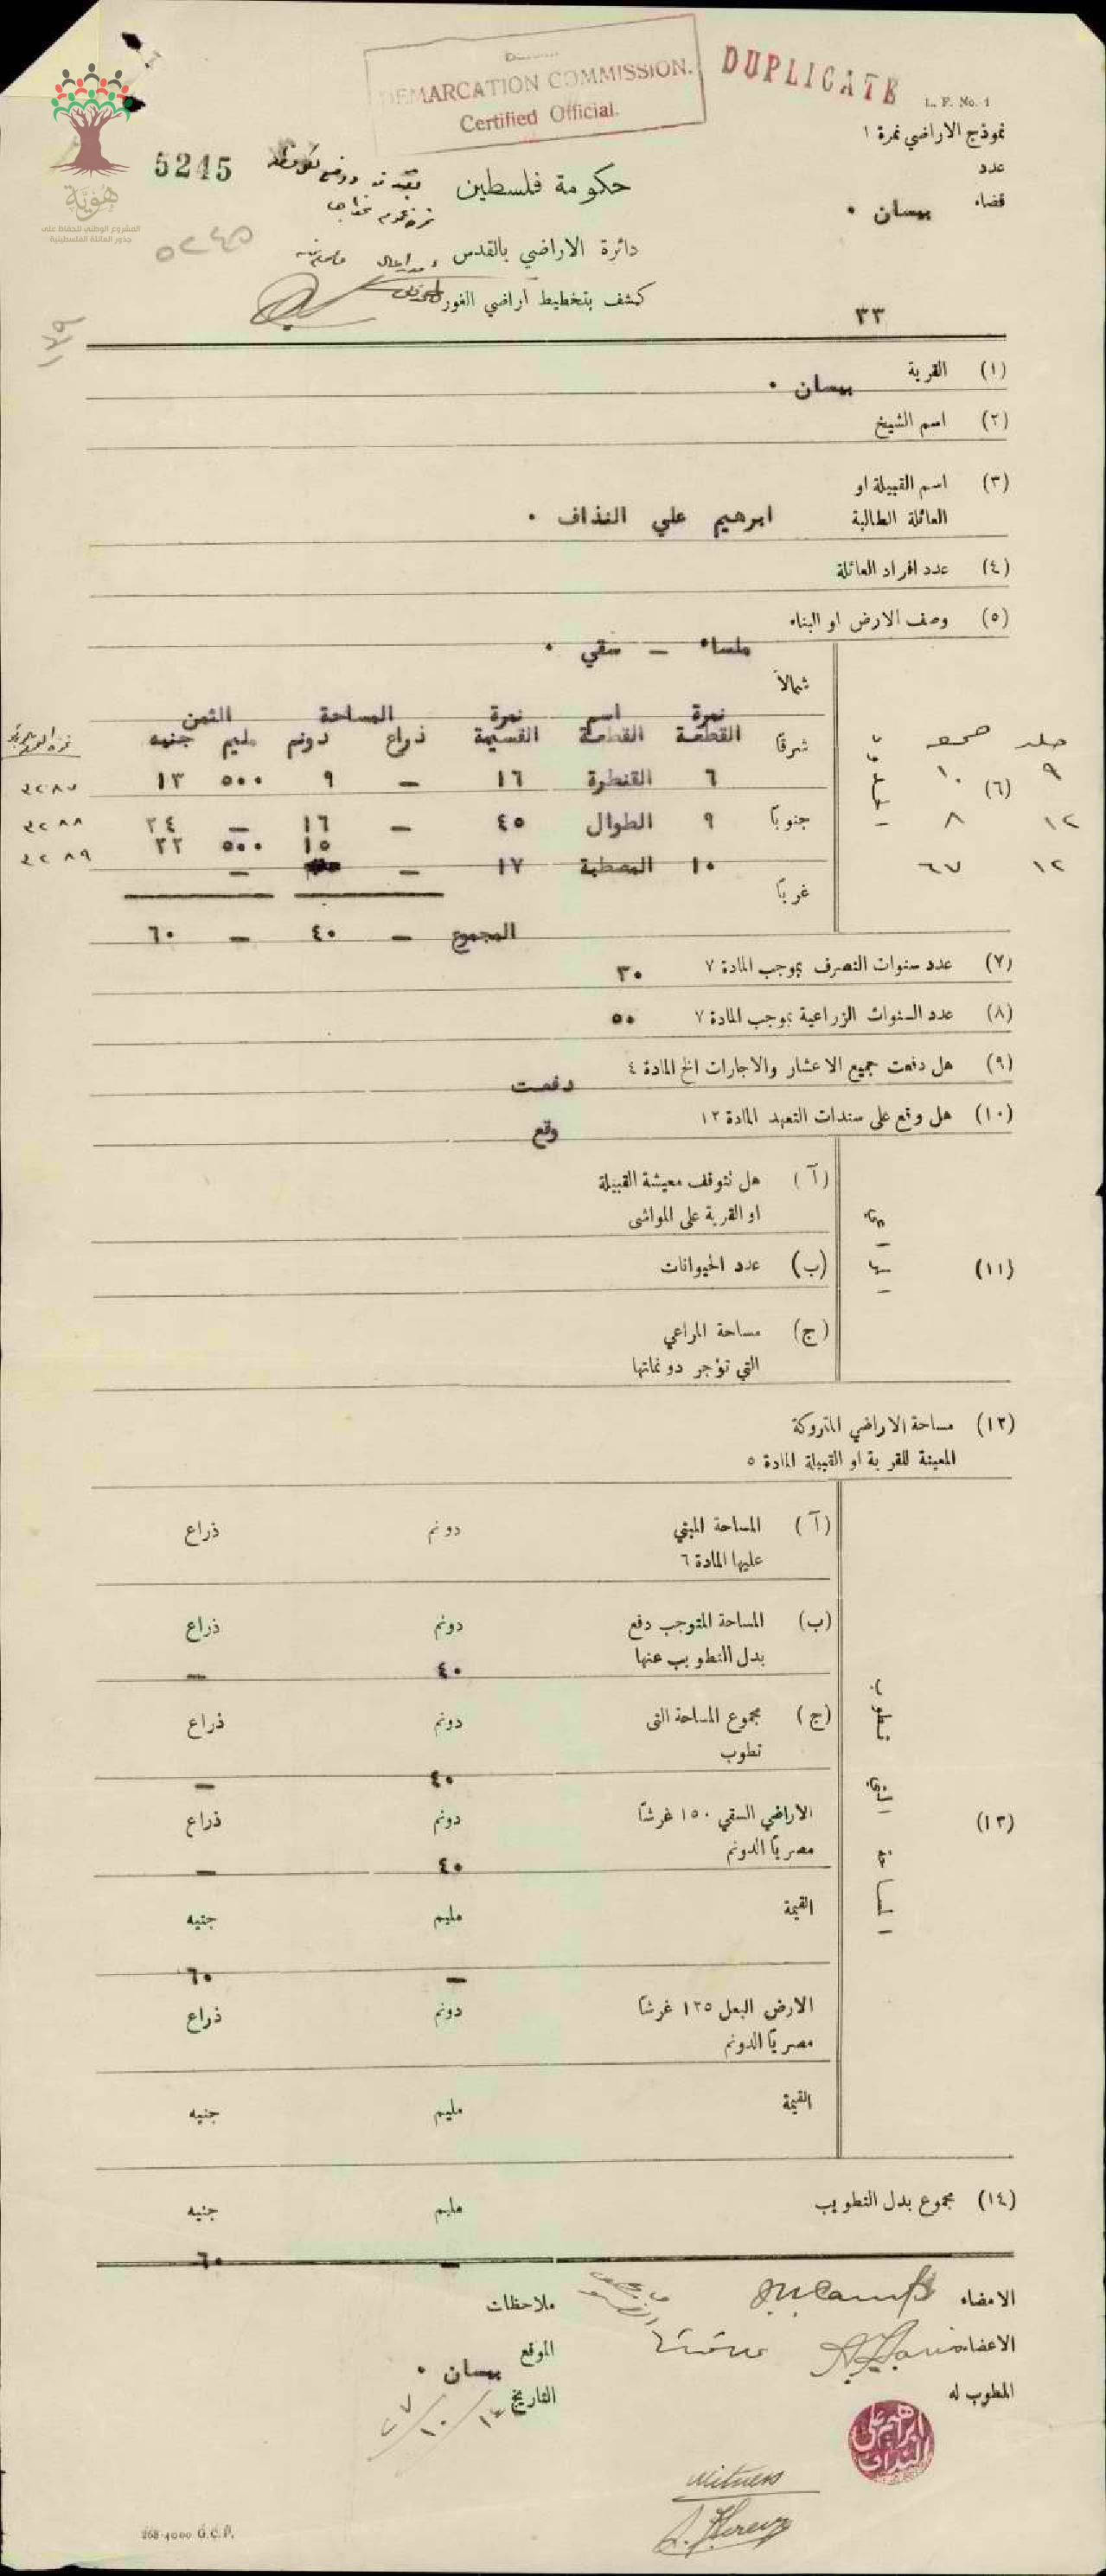 DEMARCATION COMMISSION.
Certified Official.
DUPLICATE
L. F. No. 1
نموذج الاراضي نمرة ١
عدد
قضاء بيسان •
هُوِيَّة
المشروع الوطني للحفاظ على
جذور العائلة الفلسطينية
5245
٥٢٤٥
حكومة فلسطين
دائرة الاراضي بالقدس
كشف بتخطيط اراضي الغور
٣٣
(١) القرية بيسان •
(٢) اسم الشيخ
(٣) اسم القبيلة او
العائلة الطالبة ابرهيم علي النذاف •
(٤) عدد افراد العائلة
(٥) وصف الارض او البناء
ملساء — سقي •
(٦) الحدود
شمالاً
شرقاً
جنوباً
غرباً
نمرة القطعة اسم القطعة نمرة القسيمة المساحة الثمن
ذراع دونم مليم جنيه
جلد
٩ ١٠ ٦ القنطرة ١٦ — ٩ ٥٠٠ ١٣ ٣٢٨٧
١٢ ٨ ٩ الطوال ٤٥ — ١٦ — ٢٤ ٣٢٨٨
١٢ ٦٧ ١٠ المصطبة ١٧ — ١٥ ٥٠٠ ٢٢ ٣٢٨٩
المجموع — ٤٠ — ٦٠
(٧) عدد سنوات التصرف بموجب المادة ٧ ٣٠
(٨) عدد السنوات الزراعية بموجب المادة ٧ ٥٠
(٩) هل دفعت جميع الاعشار والاجارات الخ المادة ٤ دفعت
(١٠) هل وقع على سندات التعهد المادة ١٣ وقع
(١١)
(آ) هل تتوقف معيشة القبيلة
او القرية على المواشي
(ب) عدد الحيوانات
(ج) مساحة المراعي
التي تؤجر دونماتها
(١٢) مساحة الاراضي المتروكة
المعينة للقرية او القبيلة المادة ٥
(١٣) المساحة التي تطوب
(آ) المساحة المبني دونم ذراع
عليها المادة ٦
(ب) المساحة المتوجب دفع دونم ذراع
بدل التطويب عنها ٤٠ —
(ج) مجموع المساحة التي دونم ذراع
تطوب ٤٠ —
الاراضي السقي ١٥٠ غرشاً دونم ذراع
مصرياً الدونم ٤٠ —
القيمة مليم جنيه
— ٦٠
الارض البعل ١٢٥ غرشاً دونم ذراع
مصرياً الدونم
القيمة مليم جنيه
(١٤) مجموع بدل التطويب مليم جنيه
— ٦٠
الامضاء
الاعضاء
المطوب له
ملاحظات
الموقع بيسان •
التاريخ ١٤/١٠/٢٧
ابراهيم علي
النداف
Witness
268-4000 G.C.P.